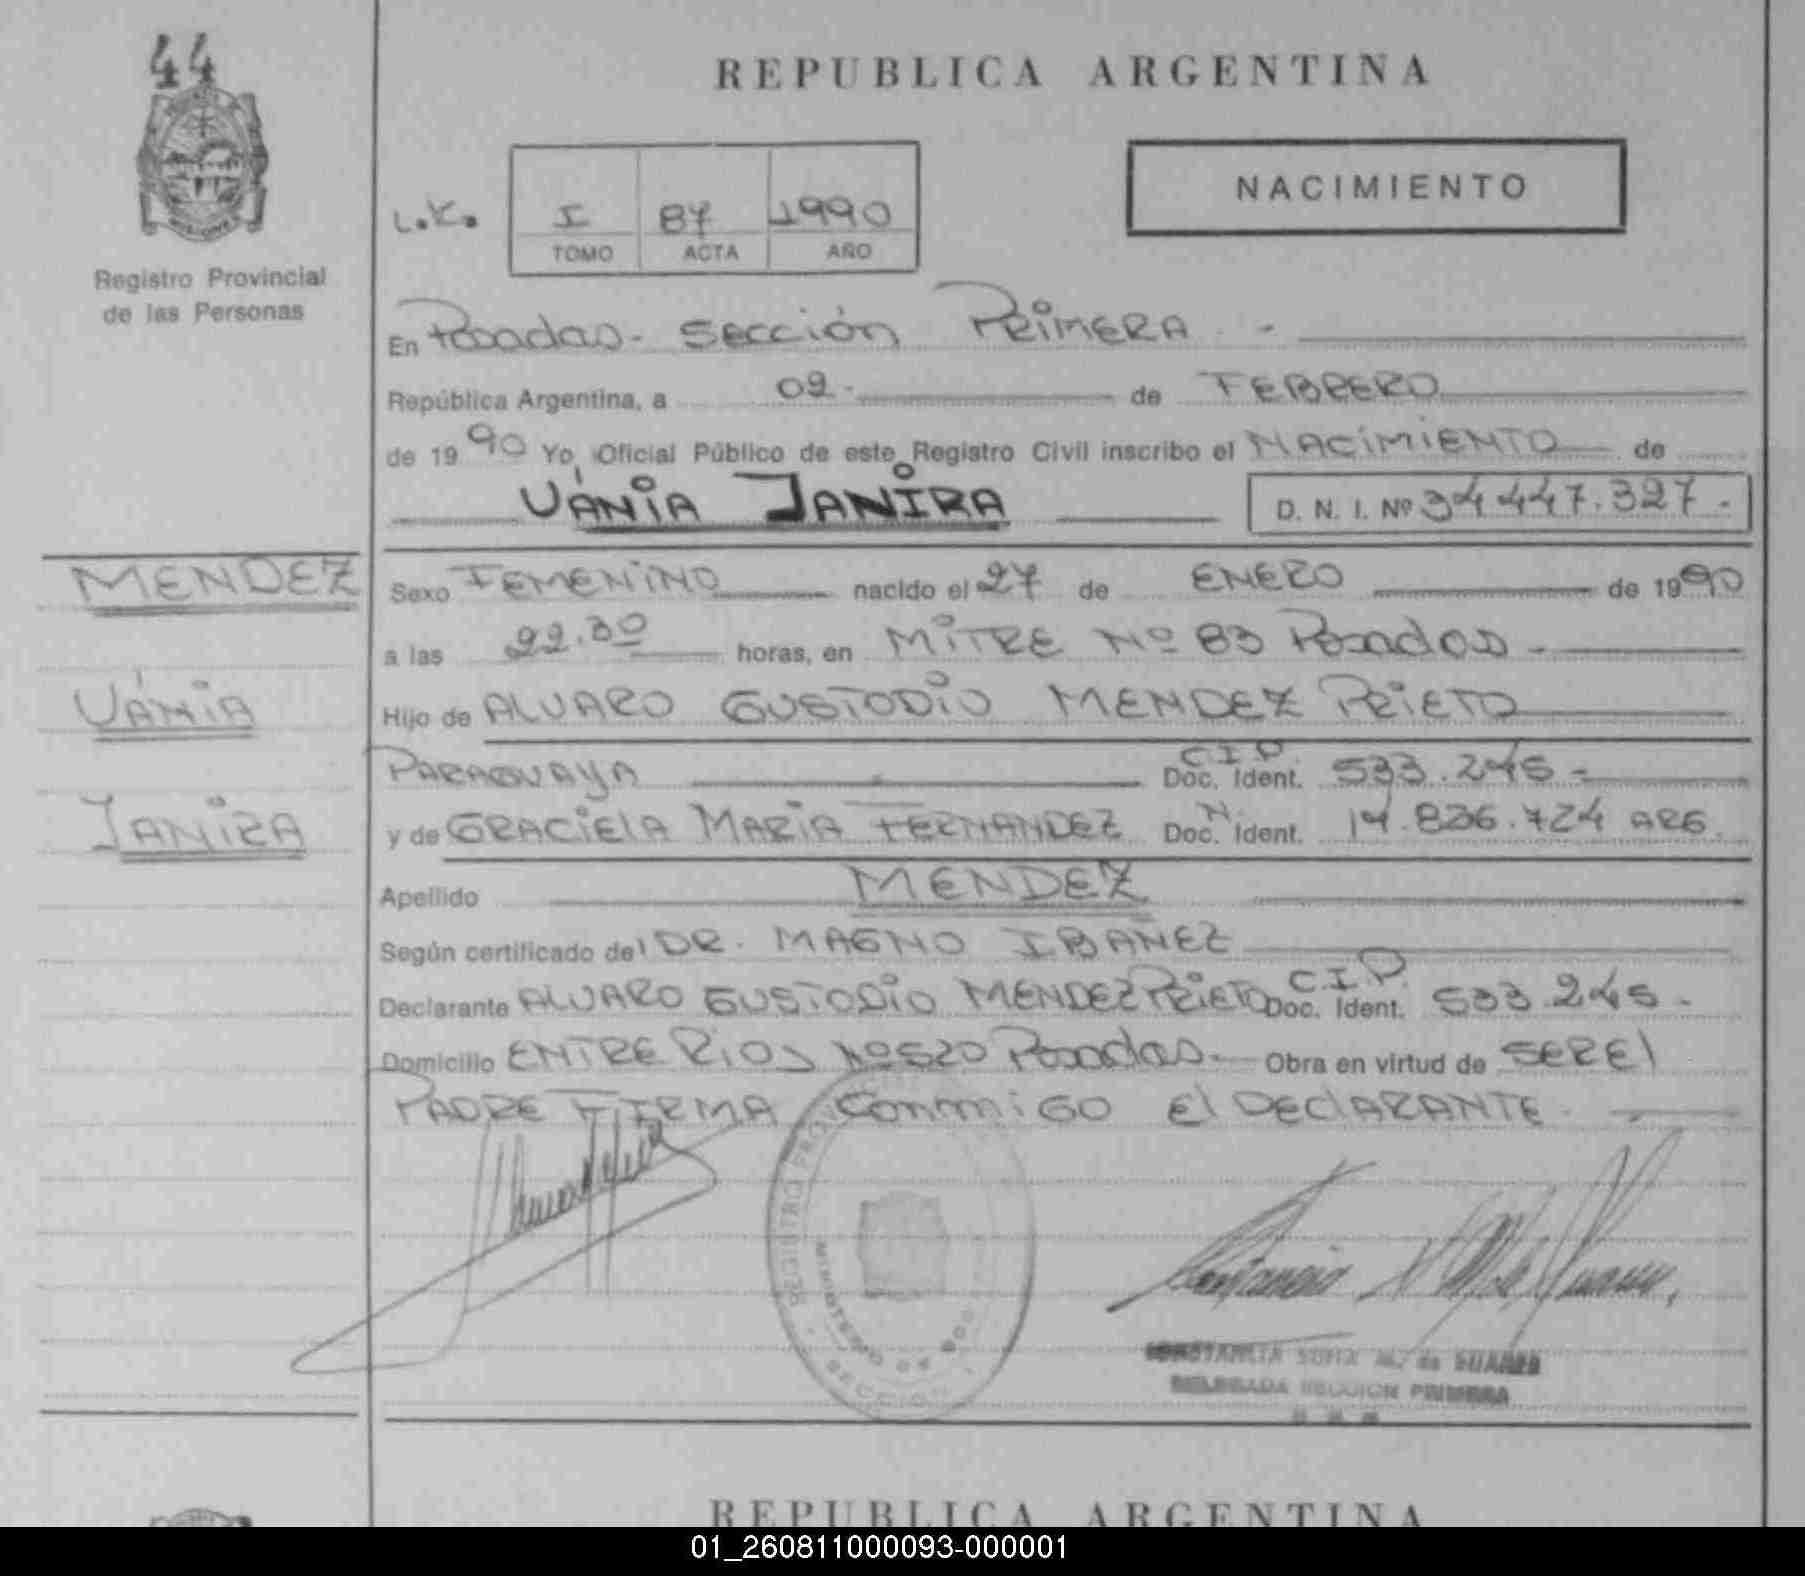 44
REPUBLICA ARGENTINA
NACIMIENTO
I 87 1990
TOMO ACTA AÑO
Registro Provincial
de las Personas
En Posadas - Sección Primera -
República Argentina, a 02 - de FEBRERO
de 1990 Yo, Oficial Público de este Registro Civil inscribo el NACIMIENTO de
VÁNIA JANIRA D. N. I. Nº 34447.327 -
MENDEZ
VÁNIA
JANIRA
Sexo FEMENINO nacido el 27 de ENERO de 1990
a las 22.30 horas, en MITRE Nº 83 Posadas -
Hijo de ALVARO GUSTODIO MENDEZ PRIETO
PARAGUAYA C.I.P. Doc. Ident. 533.245 -
y de GRACIELA MARIA FERNANDEZ Doc. Ident. 14.836.724 ARG.
Apellido MENDEZ
Según certificado del DR. MAGNO IBAÑEZ
Declarante ALVARO GUSTODIO MENDEZ PRIETO C.I.P. Doc. Ident. 533.245 -
Domicilio ENTRE RIOS Nº 520 Posadas - Obra en virtud de SER El
PADRE FIRMA CONMIGO El DEClARANTE
REGISTRO
MINISTERIO DE
SECCION
CONSTANCIA SOFIA M. de SUAREZ
DELEGADA SECCION PRIMERA
REPUBLICA ARGENTINA
01_260811000093-000001